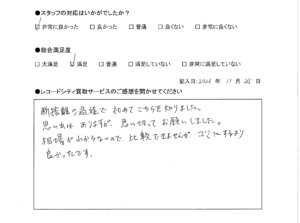 ●スタッフの対応はいかがでしたか?
☑非常に良かった □良かった □普通 □良くない □非常に良くない
●総合満足度
□大満足 ☑満足 □普通 □満足していない □非常に満足していない
記入日 2024年 11月 25日
●レコードシティ買取サービスのご感想を聞かせてください
断捨離の過程で初めてこちらを知りました。
思い出はありますが、思い切ってお願いしました。
相場がわからないので比較できませんが、ゴミにするより
良かったです。